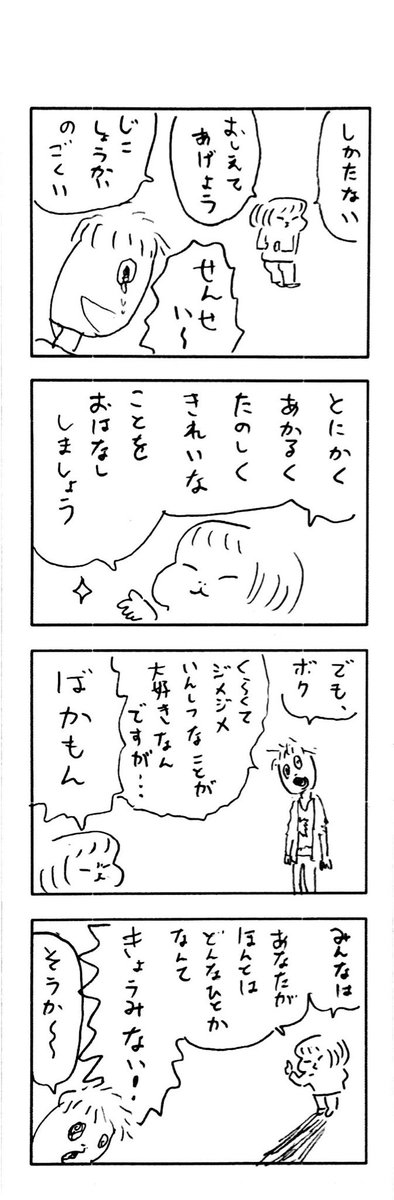 しかたない
おしえて
あげよう
じこ
しょうかい
のごくい
せんせ
い〜
とにかく
あかるく
たのしく
きれいな
ことを
おはなし
しましょう
でも、
ボク
く〜くて
ジメジメ
いんしつなことが
大好きなん
ですが…
ばかもん
みんなは
あなたが
ほんとは
どんなひとか
なんて
きょうみない!
そうか〜